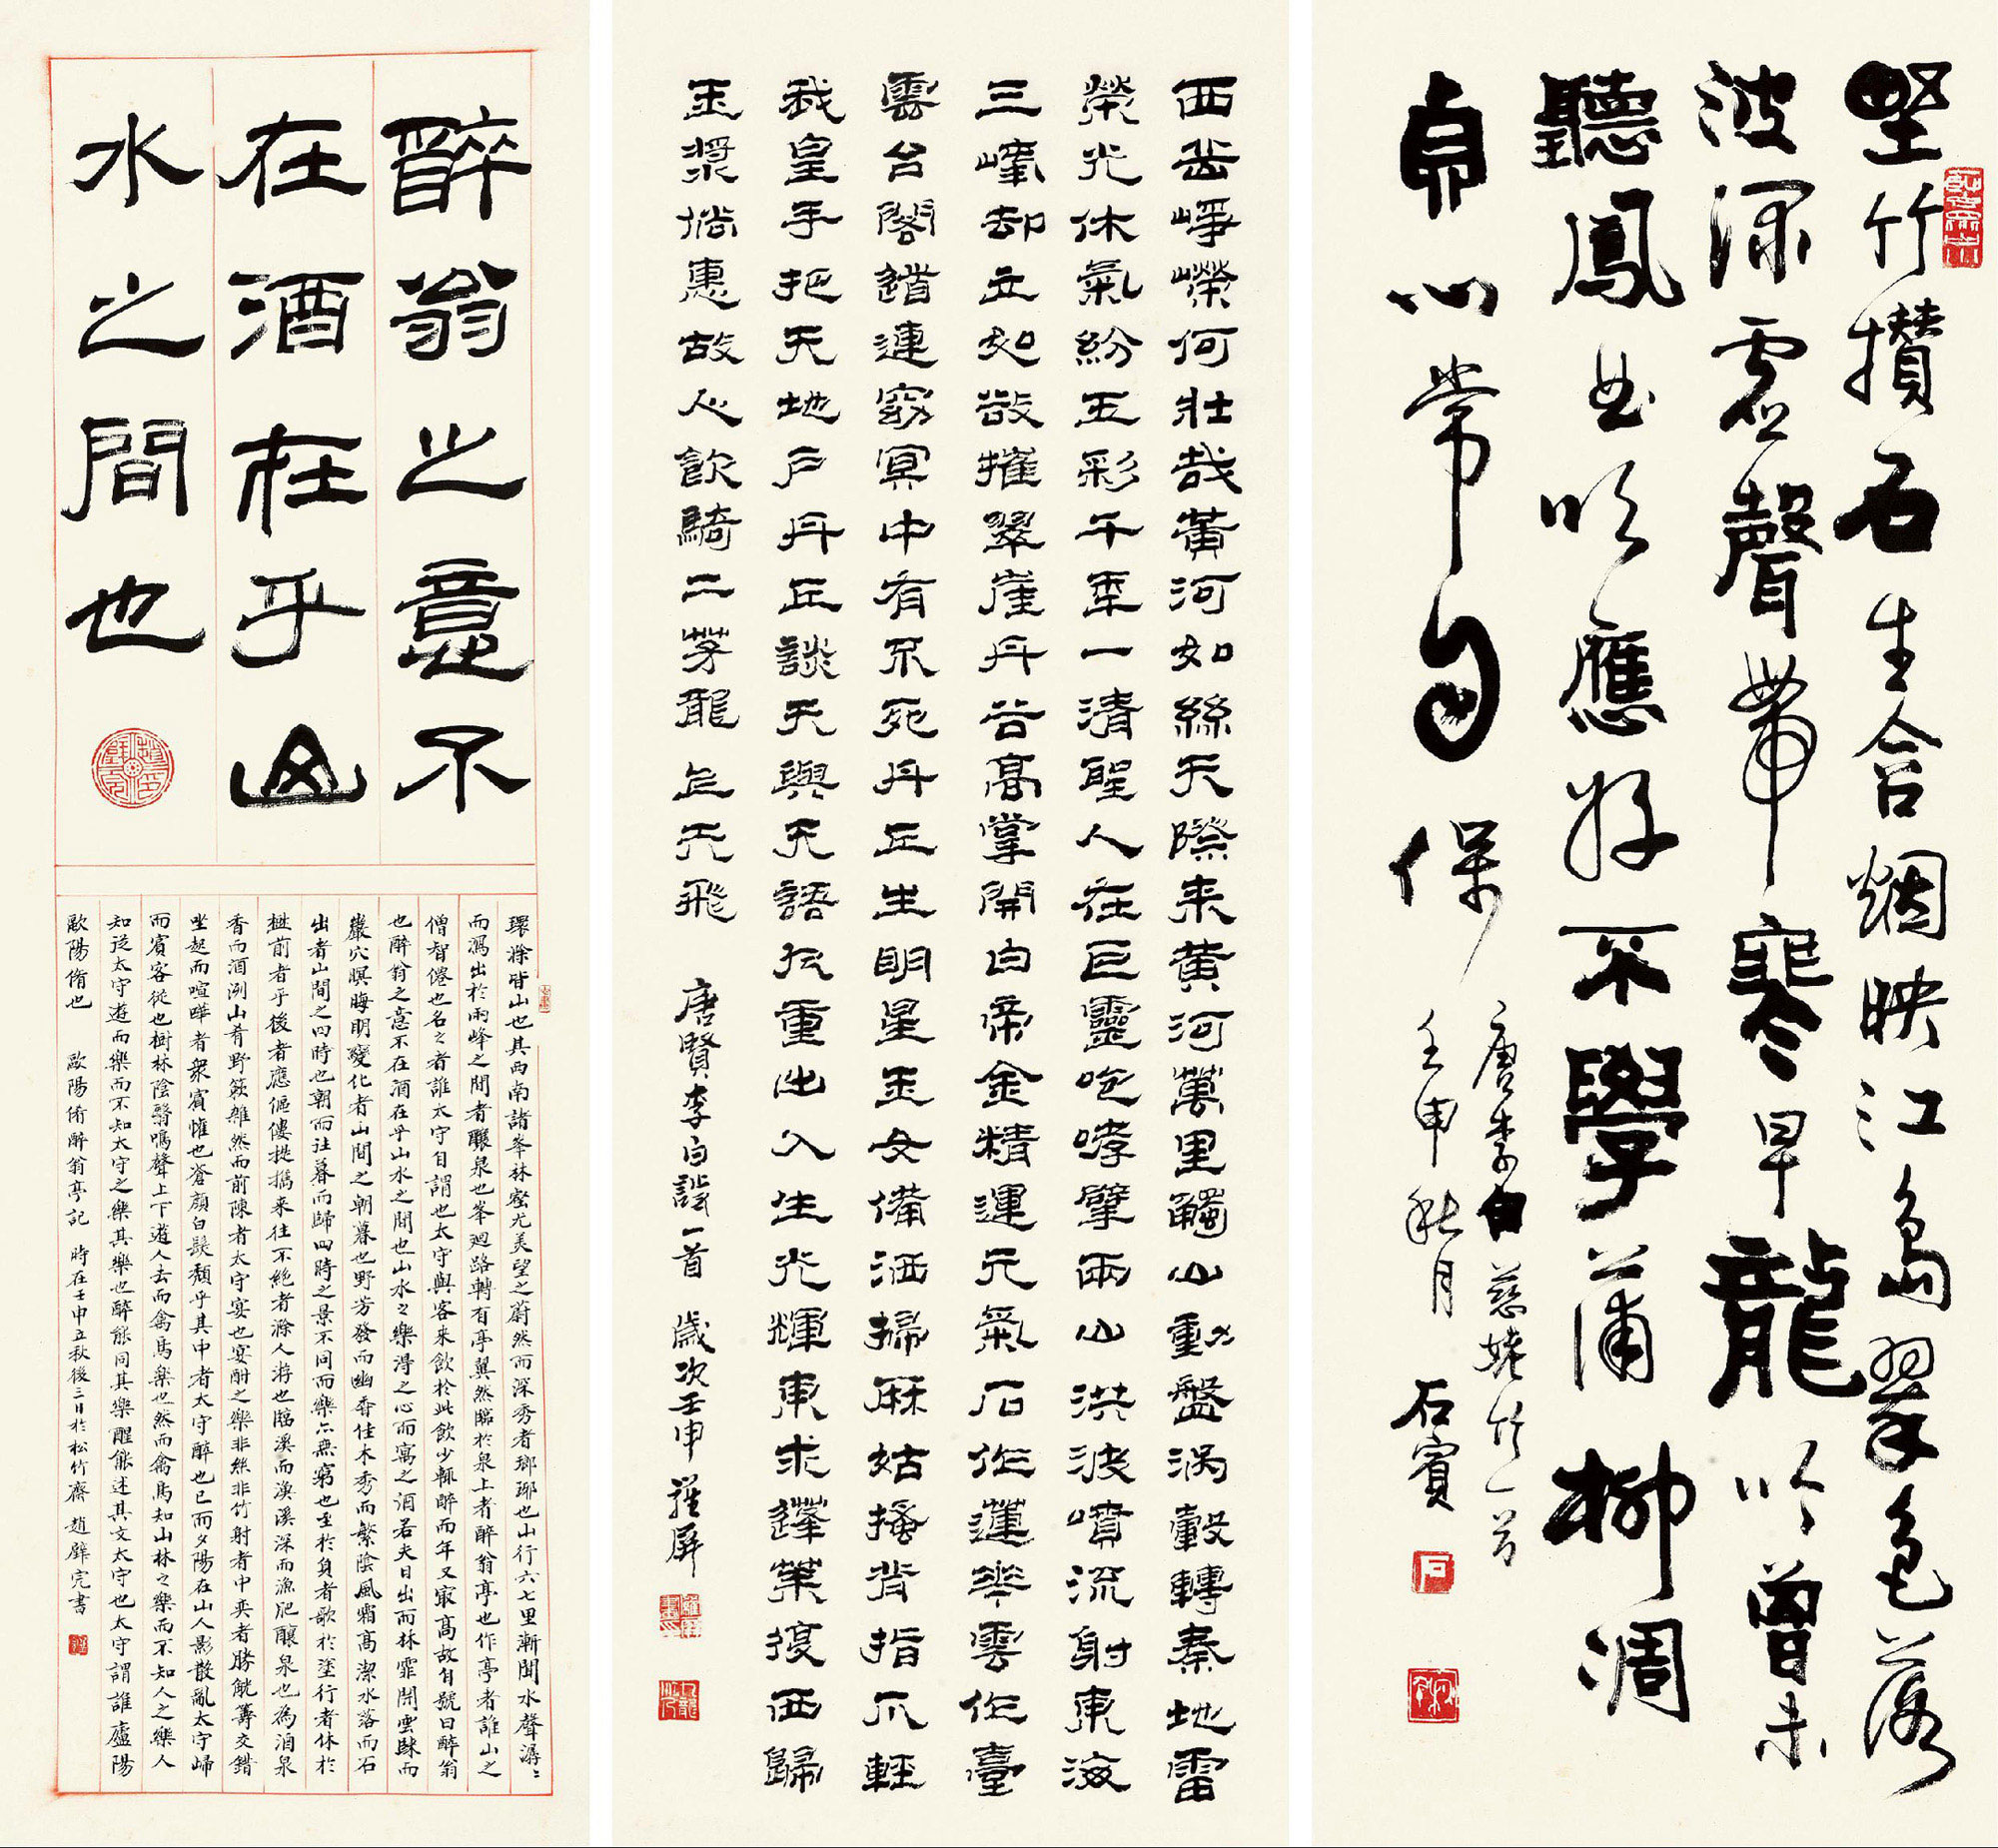 墅竹攢石生含烟映江島翠色落
波深虛聲帶寒早龍吟曾未
聽鳳曲吹應好不學蒲柳凋
貞心常自保
唐李白慈姥竹一首
壬申秋月 石賓
西岳崢嶸何壯哉黃河如絲天際来黃河萬里觸山動盤渦轂轉秦地雷
榮光休氣紛五彩千年一清聖人在巨靈咆哮擘兩山洪波噴流射東海
三峰却立如欲摧翠崖丹谷高掌開白帝金精運元氣石作蓮華雲作臺
雲台閣道連窈冥中有不死丹丘生明星玉女備洒掃麻姑搔背指爪輕
我皇手把天地戶丹丘談天與天語九重出入生光輝東求蓬萊復西歸
玉漿倘惠故人飲騎二茅龍上天飛 唐賢李白詩一首 歲次壬申 羅屏
醉翁之意不
在酒在乎山
水之間也
環滁皆山也其西南諸峯林壑尤美望之蔚然而深秀者瑯琊也山行六七里漸聞水聲潺〻
而瀉出於兩峰之間者釀泉也峯迴路轉有亭翼然臨於泉上者醉翁亭也作亭者誰山之
僧智僊也名之者誰太守自謂也太守與客来飲於此飲少輒醉而年又最高故自號曰醉翁
也醉翁之意不在酒在乎山水之間也山水之樂得之心而寓之酒若夫日出而林霏開雲歸而
巖穴暝晦明變化者山間之朝暮也野芳發而幽香佳木秀而繁陰風霜高潔水落而石
出者山間之四時也朝而往暮而歸四時之景不同而樂亦無窮也至於負者歌於塗行者休於
樹前者乎後者應傴僂提攜来往不絕者滁人游也臨溪而漁溪深而漁肥釀泉也為酒泉
香而酒洌山肴野簌雜然而前陳者太守宴也宴酣之樂非絲非竹射者中奕者勝觥籌交錯
坐起而喧嘩者衆賓懽也蒼顏白髮頹乎其中者太守醉也已而夕陽在山人影散亂太守歸
而賓客從也樹林陰翳鳴聲上下遊人去而禽鳥樂也然而禽鳥知山林之樂而不知人之樂人
知從太守遊而樂而不知太守之樂其樂也醉能同其樂醒能述其文太守也太守謂誰廬陽
歐陽脩也 歐陽脩醉翁亭記 時在壬申立秋後三日於松竹齋趙完書